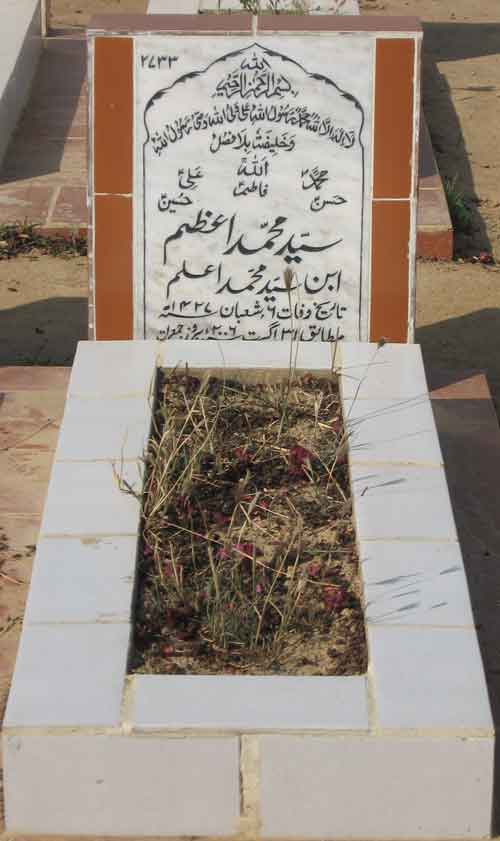 ۲۷۳۳
الله
بسم الله الرحمن الرحیم
لا اله الا الله محمد رسول الله علی ولی الله وصی رسول الله
وخلیفته بلا فصل
الله
محمدؐ فاطمہؑ علیؑ
حسنؑ حسینؑ
سید محمد اعظم
ابن سید محمد اعلم
تاریخ وفات ۶ شعبان ۱۴۲۷ھ
مطابق ۳۱ اگست ۲۰۰۶ بروز جمعرات